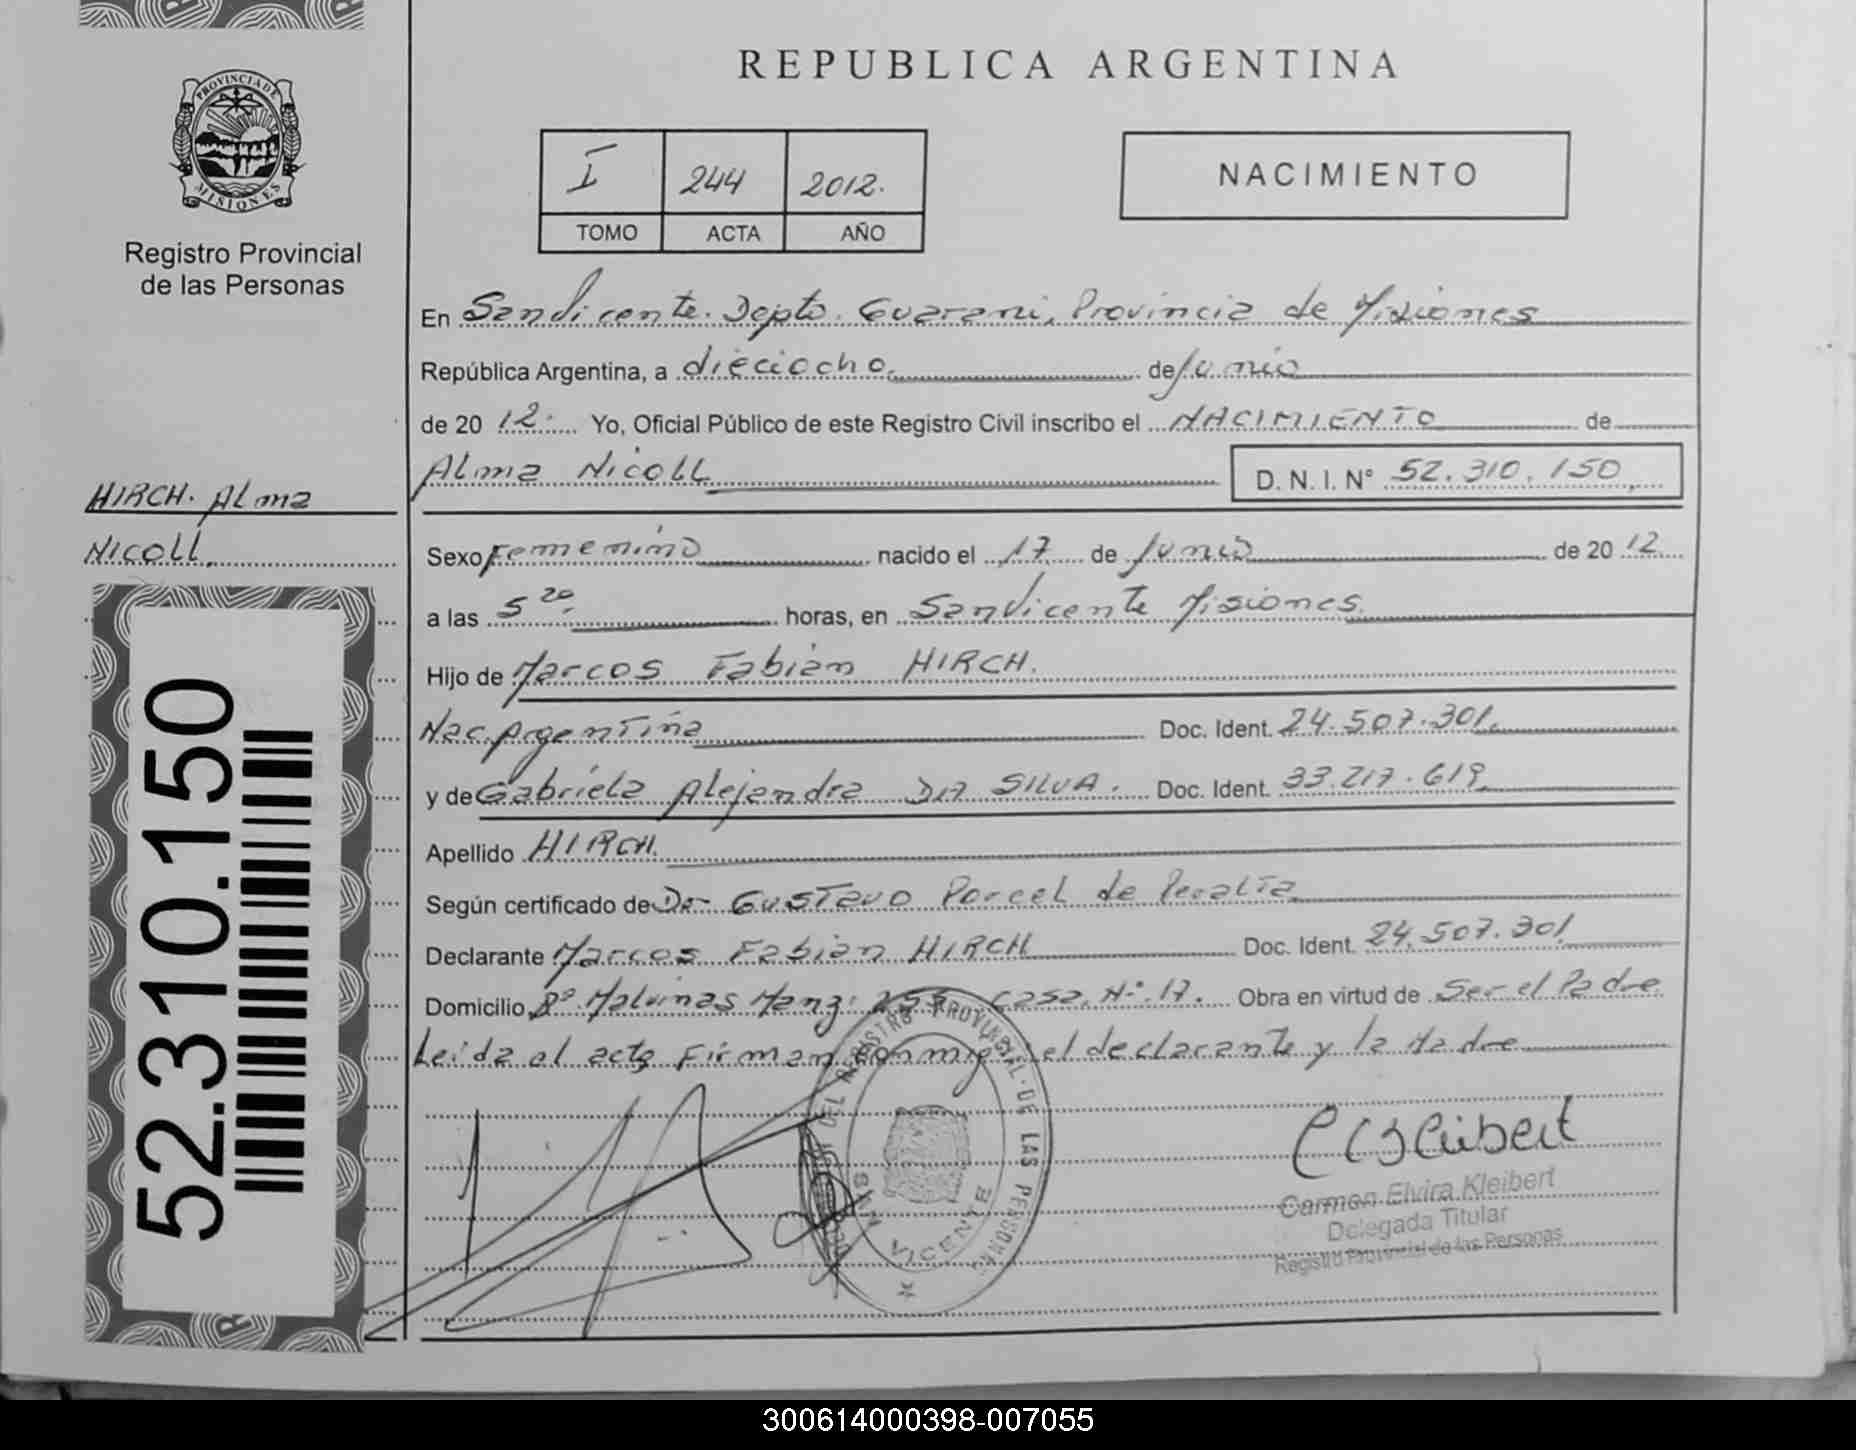 PROVINCIA DE
MISIONES
Registro Provincial
de las Personas
HIRCH. Alma
Nicoll.
52.310.150
REPUBLICA ARGENTINA
I 244 2012.
TOMO ACTA AÑO
NACIMIENTO
En San Vicente. Depto. Guarani, Provincia de Misiones
República Argentina, a dieciocho. de Junio
de 2012. Yo, Oficial Público de este Registro Civil inscribo el NACIMIENTO de
Alma Nicoll D. N. I. N° 52.310.150,
Sexo Femenino nacido el 17 de Junio de 2012
a las 5 20. horas, en San Vicente Misiones.
Hijo de Marcos Fabián HIRCH.
Nac. Argentina Doc. Ident. 24.507.301.
y de Gabriela Alejandra DA SILVA. Doc. Ident. 33.217.619.
Apellido HIRCH.
Según certificado de Dr- Gustavo Porcel de Peralta.
Declarante Marcos Fabián HIRCH Doc. Ident. 24.507.301
Domicilio B° Malvinas Manz: 255 Casa N° 17. Obra en virtud de Ser el Padre
Leida el acta Firman conmigo, el declarante y la Madre
DEL REGISTRO PROVINCIAL DE LAS PERSONAS
SAN VICENTE
Carmen Elvira Kleibert
Delegada Titular
Registro Provincial de las Personas
300614000398-007055